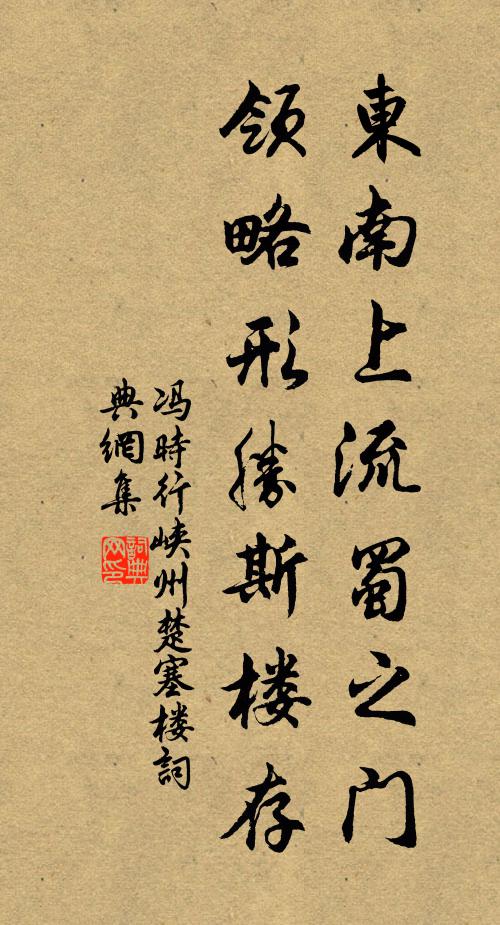 東南上流蜀之门
领略形勝斯楼存
冯時行峡州楚塞楼詞
典網集
詞典
网印